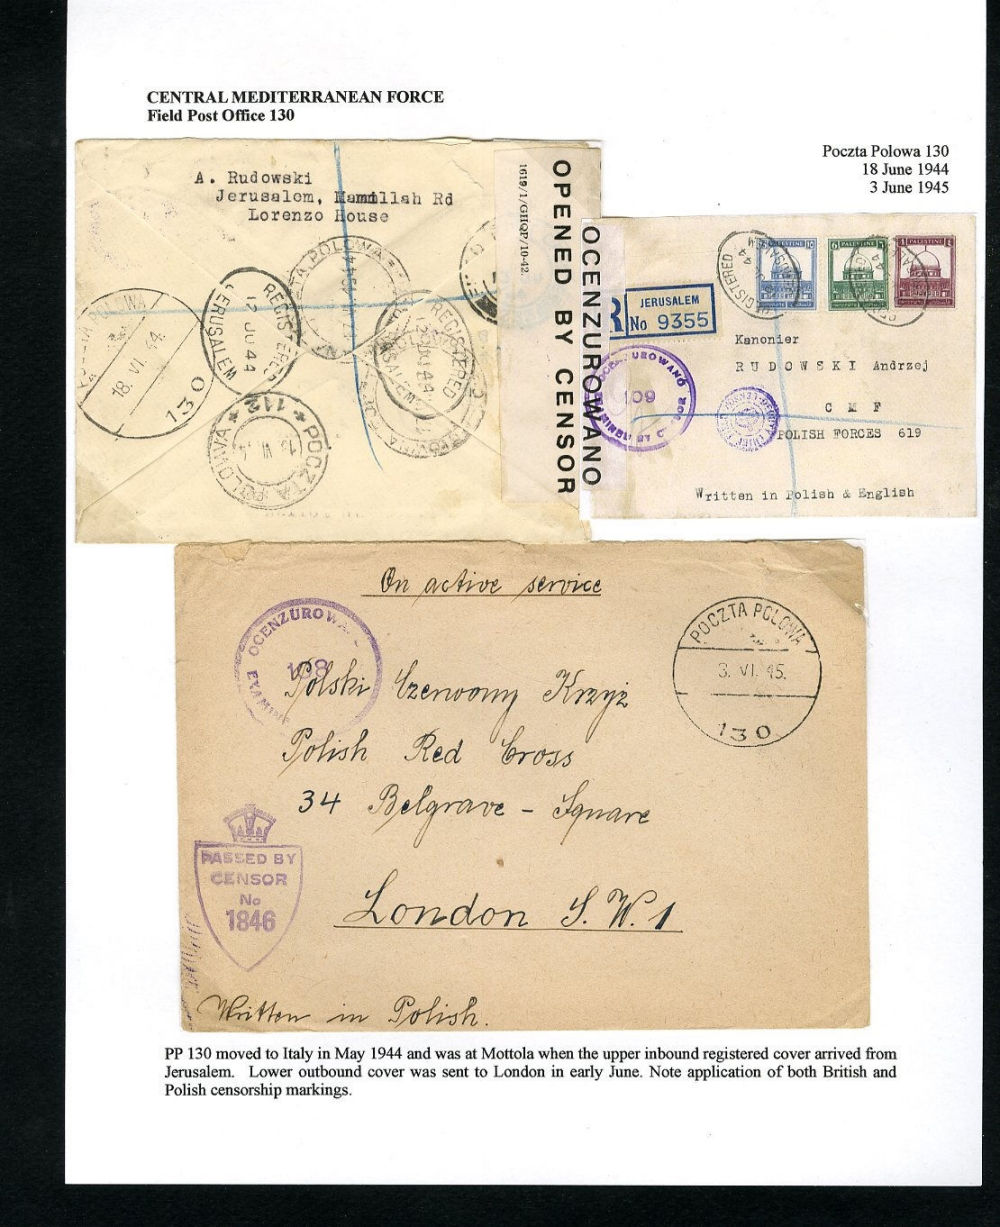 CENTRAL MEDITERRANEAN FORCE
Field Post Office 130
Poczta Polowa 130
18 June 1944
3 June 1945
A. Rudowski
Jerusalem, Mamillah Rd
Lorenzo House
POLOWA
18. VI. 44.
130
REGISTERED
JERUSALEM
12 JU 44
POCZTA POLOWA
REGISTERED
* 112 *
POCZTA POLOWA
1619/1/GHQP/10-42.
OPENED BY CENSOR
OCENZUROWANO
R
JERUSALEM
No 9355
PALESTINE
PALESTINE
PALESTINE
REGISTERED
OCENZUROWANO
109
Kanonier
RUDOWSKI Andrzej
C M F
POLISH FORCES 619
Written in Polish & English
On active service
OCENZUROWA
108
EXAMINE
POCZTA POLOWA
3. VI. 45.
130
Polski Czerwony Krzyż
Polish Red Cross
34 Belgrave - Square
London S.W.1
PASSED BY
CENSOR
No
1846
Written in Polish.
PP 130 moved to Italy in May 1944 and was at Mottola when the upper inbound registered cover arrived from
Jerusalem. Lower outbound cover was sent to London in early June. Note application of both British and
Polish censorship markings.